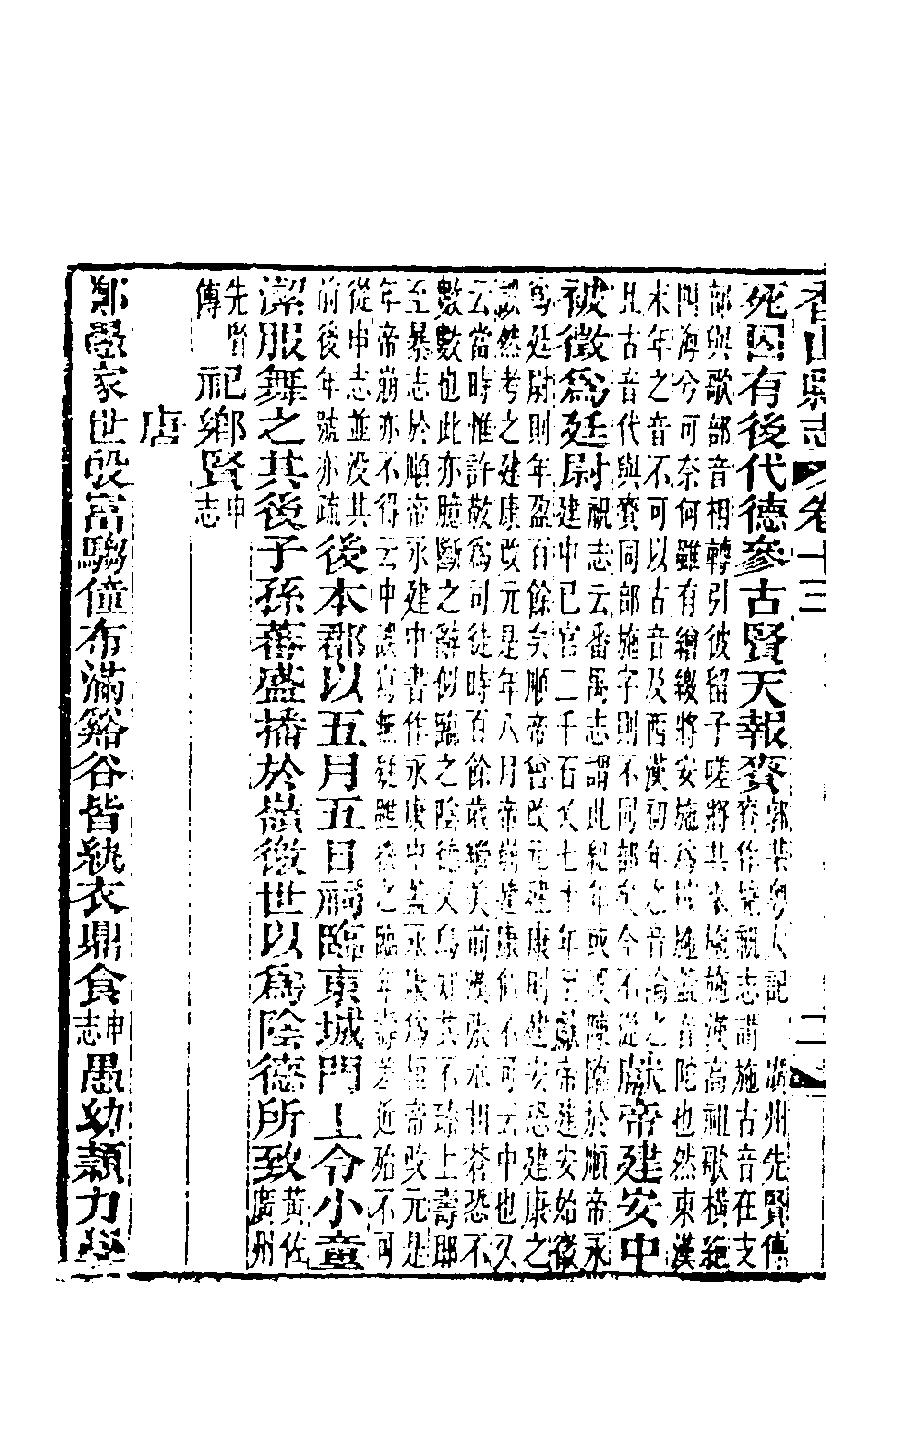 香山縣志 卷十三 二
死囚有後代德參古賢天報賚郭棐粵大記 廣州先賢傳
賚作施祝志謂施古音在支
部與歌部音相轉引彼留子嗟將其來施施漢高祖歌橫絕
四海兮可奈何雖有繒繳將安施為皆施蓋音陀也然東漢
末年之音不可以古音及西漢初年之音論之
且古音代與賚同部施字則不同部矣今不從獻帝建安中
被徵爲廷尉祝志云番禺志謂此紀年或誤陳臨於順帝永
建中已官二千石矣七十年至獻帝建安始徵
爲廷尉則年盈百餘矣順帝曾改元建康則建安恐建康之
誤然考之建康改元是年八月帝崩建康似不可云中也又
云當時惟許敬爲司徒時百餘歲繼美前漢張丞相蒼恐不
數數也此亦臆斷之辭似臨之陰德又烏知其不臻上壽耶
至暴志於順帝永建中書作永康中蓋永康爲桓帝改元是
年帝崩亦不得云中誤寫無疑雖後之臨年壽差近殆不可
從申志並沒其
前後年號亦疏後本郡以五月五日祠臨東城門上令小童
潔服舞之其後子孫蕃盛播於嶺徼世以爲陰德所致黃佐
廣州
先賢
傳祀鄉賢申
志
唐
鄭愚家世殷富騶僮布滿谿谷皆紈衣鼎食申
志愚幼穎力學